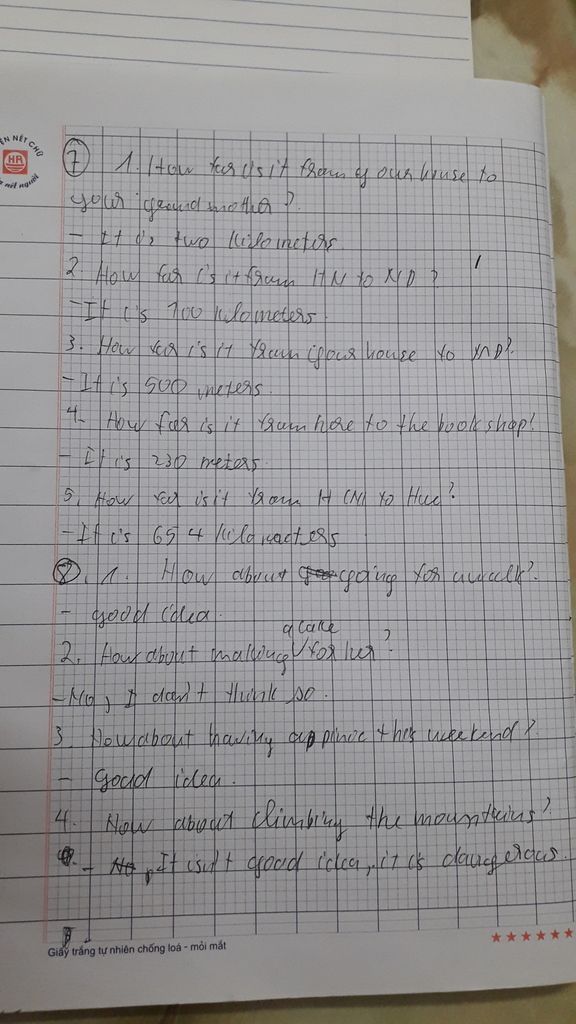 ÊN NÉT CHỮ
HR
nét người
7 1. How far is it from your house to
your grandmother?
- It is two kilometers
2. How far is it from HN to ND?
- It is 100 kilometers.
3. How far is it from your house to
- It is 500 meters.
4. How far is it from here to the bookshop?
- It is 230 meters.
5. How far is it from HCM to Hue?
- It is 654 kilo
8. 1. How about going for a walk?
- good idea.
a cake
2. How about making for her?
- No, I don't think so.
3. How about having a this weekend?
- Good idea.
4. How about climbing the mountains?
- No, It isn't good idea, it is dangerous.
Giấy trắng tự nhiên chống loá - mỏi mắt